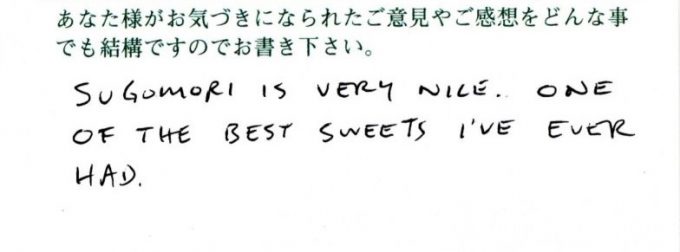 あなた様がお気づきになられたご意見やご感想をどんな事
でも結構ですのでお書き下さい。
SUGOMORI IS VERY NICE. ONE
OF THE BEST SWEETS I'VE EVER
HAD.